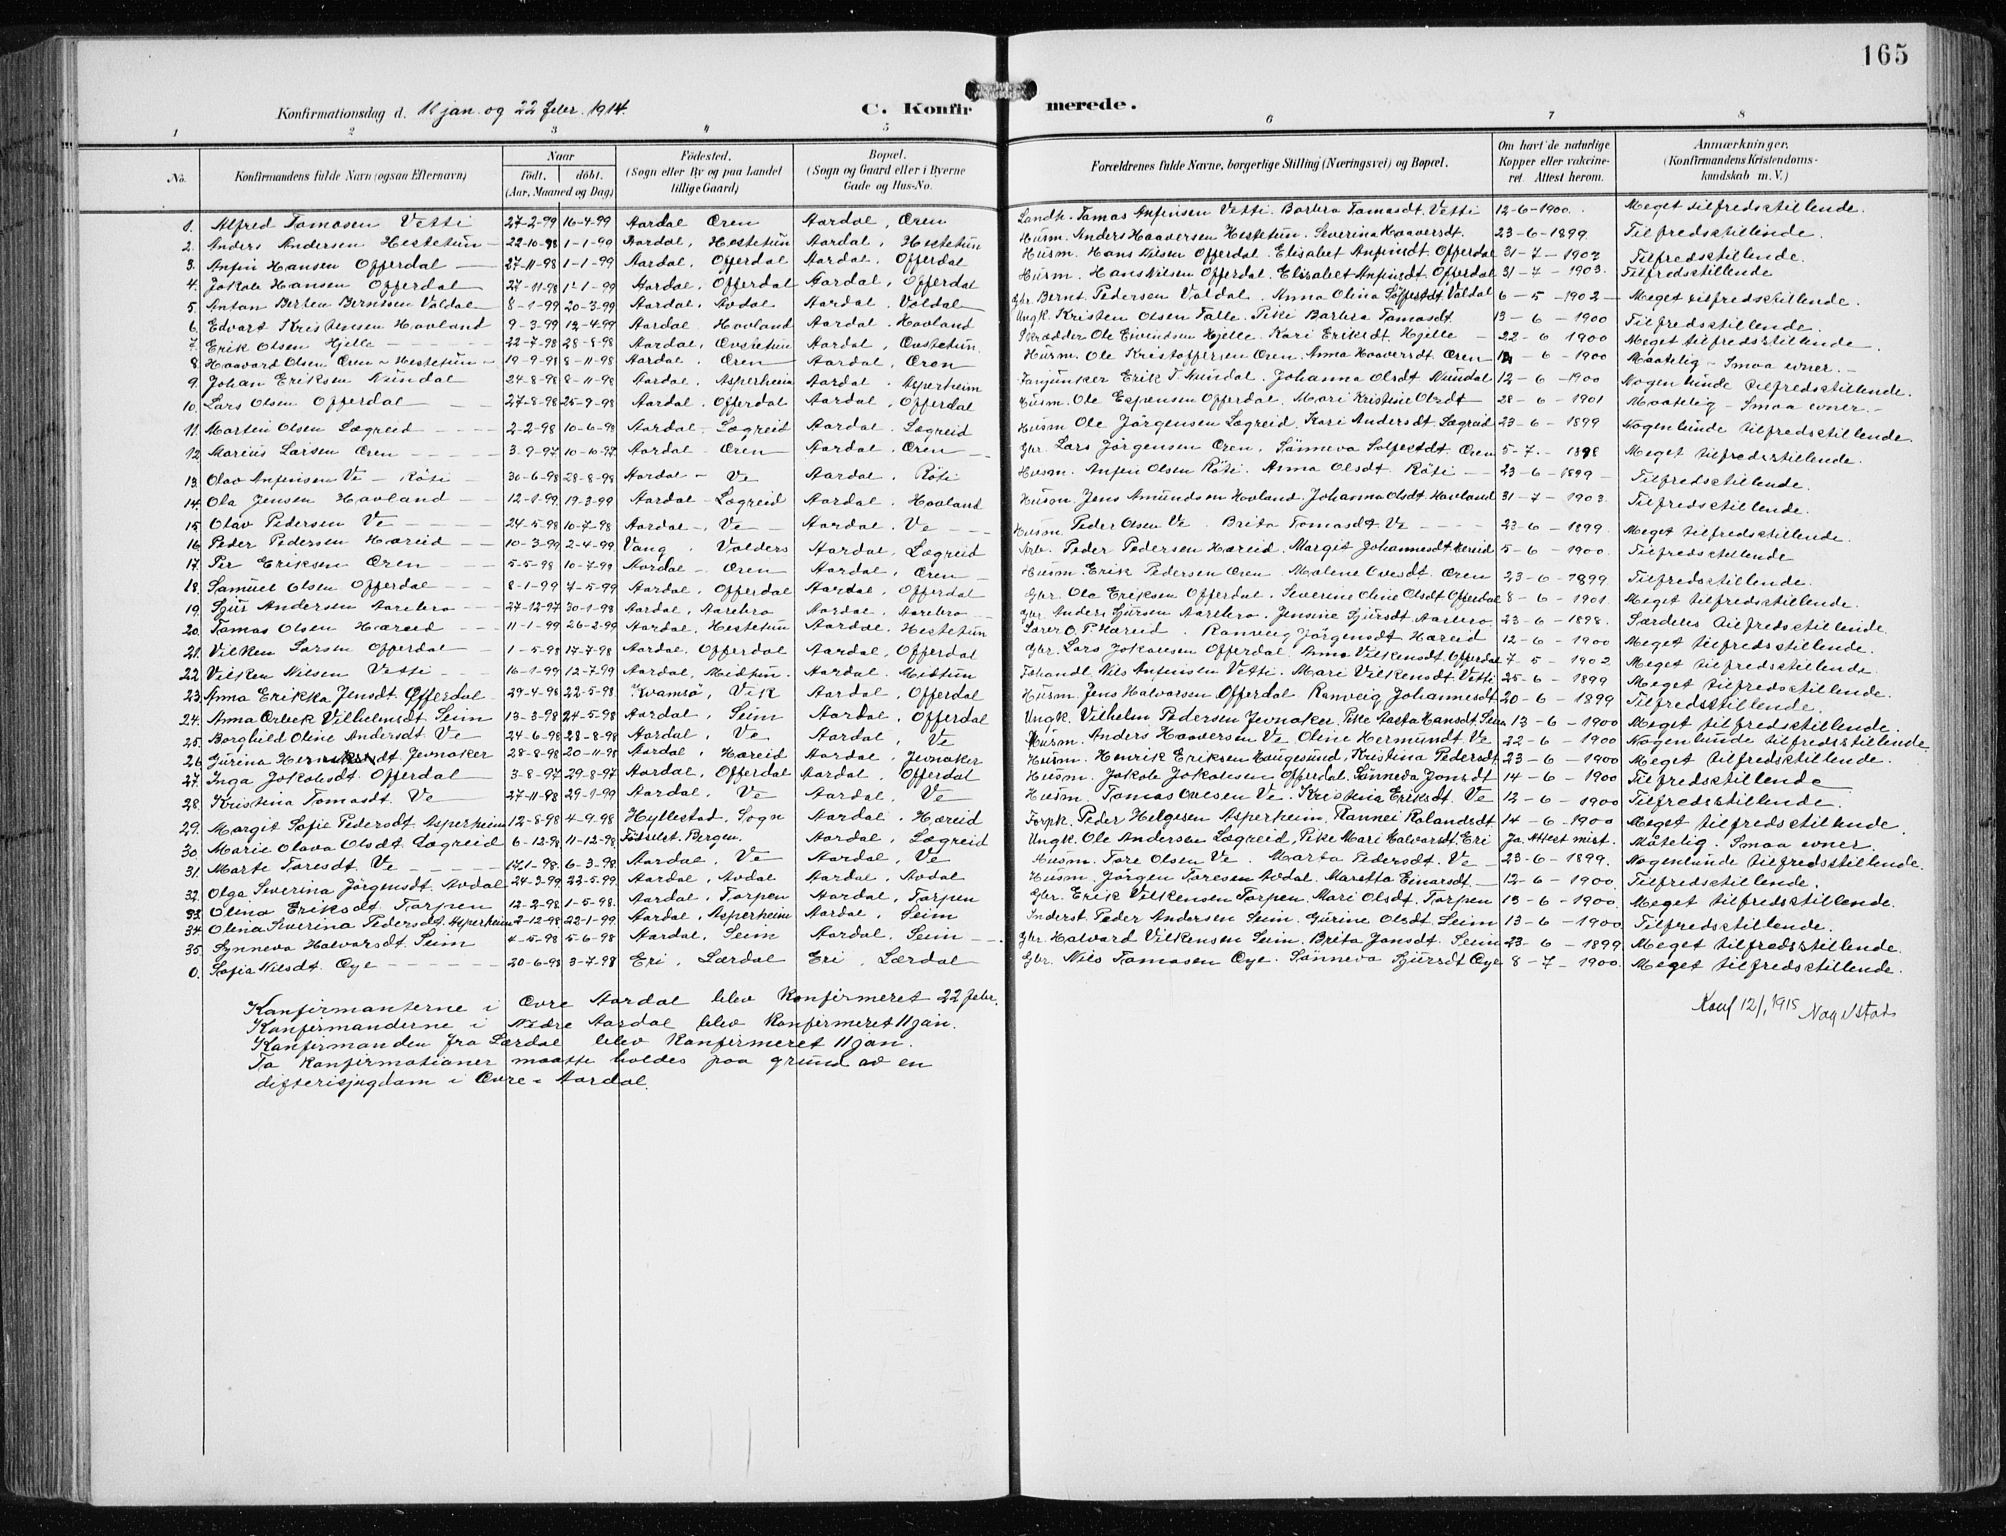 165
Konfirmationsdag d. 11 jan. og 22 febr. 1914.
C. Konfirmerede.
1 2 3 4 5 6 7 8
No. Konfirmandens fulde Navn (ogsaa Efternavn) Naar Födt. döbt. (Aar, Maaned og Dag) Födested. (Sogn eller By og paa Landet tillige Gaard) Bopæl. (Sogn og Gaard eller i Byerne Gade og Hus-No. Forældrenes fulde Navne, borgerlige Stilling (Næringsvei) og Bopæl. Om havt de naturlige Kopper eller vakcineret. Attest herom. Anmærkninger. (Konfirmandens Kristendomskundskab m. V.)
1. Alfred Tomasen Vetti 27-2-99 16-4-99 Aardal Øren Aardal, Øren Landh. Tomas Anfinsen Vetti. Barbra Tomasdt. Vetti 12-6-1900. Meget tilfredsstillende.
2. Anders Andersen Hestetun 22-10-98 1-1-99 Aardal, Hestetun Aardal, Hestetun Husm. Anders Haaversen Hestetun. Severina Haaversdt. 23-6-1899 Tilfredsstillende.
3. Anfin Hansen Offerdal 27-11-98 1-1-99 Aardal, Offerdal Aardal, Offerdal Husm. Hans Nilsen Offerdal. Elisabet Anfinsdt. Offerdal 31-7-1903 Tilfredsstillende.
4. Jakob Hansen Offerdal 27-11-98 1-1-99 Aardal, Offerdal Aardal, Offerdal Husm. Hans Nilsen Offerdal. Elisabet Anfinsdt. Offerdal 31-7-1903. Tilfredsstillende
5. Anton Berten Berntsen Voldal 8-1-99 20-3-99 Aardal, Avdal Aardal. Voldal Gbr. Bernt Pedersen Voldal. Anna Olina Sjøfestdt. Voldal 6-5-1902 Meget tilfredsstillende.
6. Edvart Kristensen Hovland 9-3-99 12-4-99 Aardal, Hovland Aardal. Hovland Ungk. Kristen Olsen Talle. Pike Barbra Tomasdt. 13-6-1900 Tilfredsstillende.
7. Erik Olsen Hjelle 22-7-98 28-8-98 Aardal, Øvstetun Aardal, Øvstetun. Skrædder Ole Eivindsen Hjelle. Kari Eriksdt. Hjelle 22-6 1900 Meget tilfredsstillende.
8. Haavard Olsen Øren - Hestetun 19-9-98 8-11-98 Aardal. Øren Aardal, Øren Husm. Ole Kristoffersen Øren. Anna Haaversdt. Øren 12-6-1900 Maatelig - Smaa evner.
9. Johan Eriksen Nundal 24-8-98 8-11-98 Aardal. Asperheim Aardal. Asperheim Fanjunker Erik T. Nundal. Johanna Olsdt. Nundal 12-6-1900 Nogenlunde tilfredsstillende.
10. Lars Olsen Offerdal 27-8-98 25-9-98 Aardal. Offerdal Aardal, Offerdal Husm. Ole Espensen Offerdal. Mari Kristine Olsdt 28-6-1901 Maatelig - Smaa evner.
11. Martin Olsen Lægreid 2-2-98 10-6-98 Aardal - Lægreid Aardal. Lægreid Husm Ole Jörgensen Lægreid, Kari Andersdt. Lægreid 23-6-1899 Nogenlunde tilfredsstillende.
12. Marius Larsen Øren 3-9-97 10-10-97 Aardal - Øren Aardal, Øren Gbr. Lars Jörgensen Øren, Sünneva Solfestdt. Øren 5-7-1898 Meget tilfredsstillende.
13. Olav Anfinsen Ve - Röti 30-6-98 28-8-98 Aardal - Ve Aardal, Röti Husm. Anfin Olsen Röti. Anna Olsdt. Röti 23-6-1899 Tilfredsstillende.
14. Ola Jensen Hovland 12-1-99 19-3-99 Aardal - Lægreid Aardal. Hovland Husm. Jens Amundsen Hovland. Johanna Olsdt. Hovland 31-7-1903. Tilfredsstillende.
15. Olav Pedersen Ve 24-5-98 10-7-98 Aardal -. Ve Aardal. Ve Husm. Peder Olsen Ve. Brita Tomasdt. Ve 23-6-1899. Meget tilfredsstillende.
16. Peder Pedersen Hæreid 10-3-99 2-4-99 Vang, Valders Aardal, Lægreid Arb. Peder Pedersen Hæreid. Margit Johannesdt. Hæreid 5-6-1900. Tilfredsstillende
17. Per Eriksen Øren 5-5-98 10-7-98 Aardal - Øren Aardal, Øren Husm. Erik Pedersen Øren. Malene Ovesdt. Øren 23-6-1899 Tilfredsstillende.
18. Samuel Olsen Offerdal 8-1-99 7-5-99 Aardal, Offerdal Aardal, Offerdal Gbr. Ole Eriksen Offerdal. Severine Oline Olsdt. Offerdal 8-6-1901. Meget tilfredsstillende.
19. Sjur Andersen Aarebro 27-12-97 30-1-98 Aardal, Aarebro Aardal. Aarebro Gbr. Anders Sjursen Aarebro. Jensine Sjursdt. Aarebro 23-6-1898. Særdeles tilfredsstillende.
20. Tomas Olsen Hæreid 11-1-99 26-2-99 Aardal. Hestetun Aardal. Hestetun Lærer O. P. Hæreid. Ranveig Jörgensdt. Hæreid 12-6-1900 Meget tilfredsstillende.
21. Vilken Larsen Offerdal 1-5-98 17-7-98 Aardal, Offerdal Aardal, Offerdal Gbr. Lars Jokobsen Offerdal. Anna Vilkensdt. Offerdal 7-5-1902 Meget tilfredsstillende.
22. Vilken Nilsen Vetti 16-1-99 12-7-99 Aardal, Midtun. Aardal. Midtun Fehandl. Nils Anfinsen Vetti. Mari Vilkensdt. Vetti 25-6-1899 Meget tilfredsstillende.
23. Anna Erikka Jensdt. Offerdal 29-4-98 22-5-98 Kvamsö, Vik Aardal, Offerdal Husm. Jens Halvorsen Offerdal. Ranveig Johannesdt 20-6-1899 Tilfredsstillende.
24. Anna Ørbeck Vilhelmsdt. Seim 13-3-98 24-5-98 Aardal, Seim Aardal, Offerdal Ungk. Vilhelm Pedersen Jevnaker. Pike Aasta Hansdt. Seim 13-6-1900. Meget tilfredsstillende.
25. Borghild Oline Andersdt. Ve 24-6-98 28-8-98 Aardal, Ve Aardal, Ve Husm. Anders Haaversen Ve Oline Hermundt. Ve 22-6-1900 Nogenlunde tilfredsstillende
26. Gurina Henriksdt Jevnaker 28-8-98 20-11-98 Aardal, Hæreid Aardal, Jevnaker Husm. Henrik Eriksen Haugesund, Kristina Pedersdt 23-6-1900 Meget tilfredsstillende.
27. Inga Jokobsdt. Offerdal 3-8-97 29-8-97 Aardal, Offerdal Aardal, Offerdal Husm. Jakob Jakobsen Offerdal. Sünneva Jonsdt 14-6-1900 Tilfredsstillende
28. Kristina Tomasdt. Ve 27-11-98 29-1-99 Aardal, Ve Aardal, Ve Husm. Tomas Ovesen Ve. Kristina Eriksdt. Ve 12-6-1900 Tilfredsstillende.
29. Margit Sofie Pedersdt. Asperheim 12-8-98 4-9-98 Hyllestad, Sogn Aardal, Hæreid Forpk. Peder Helgesen Asperheim, Rannei Rolandsdt 14-6-1900 Meget tilfredsstillende.
30. Marie Olava Olsdt. Lægreid 6-12-98 11-12-98 Födselst. Bergen Aardal, Lægreid Ungk. Ole Andersen Lægreid, Pike Mari Halvorsdt. Eri Ja. Attest mist. Måtelig. Smaa evner.
31. Marte Toresdt. Ve 17.1-98 6-3-98 Aardal, Ve Aardal, Ve Husm. Tore Olsen Ve. Marta Pedersdt. Ve 23-6-1899. Nogenlunde tilfredsstillende.
32. Olga Severina Jörgensdt. Avdal 24-3-99 22-5-99 Aardal, Avdal Aardal, Avdal Husm. Jörgen Toresen Avdal. Maretta Einarsdt. 12-6-1900. Tilfredsstillende.
33. Olina Eriksdt. Torpen 12-2-98 1-5-98. Aardal, Torpen Aardal, Torpen Gbr. Erik Vilkensen Torpen, Mari Olsdt. Torpen 13-6-1900. Meget tilfredsstillende.
34. Olina Severina Pedersdt. Asperheim 2-12-98 22-1-99 Aardal, Asperheim Aardal, Seim Inderst. Peder Andersen Seim. Gurine Olsdt. Seim 13-6-1900 Tilfredsstillende.
35. Synneva Halvorsdt. Seim 4-5-98 5-6-98 Aardal, Seim Aardal, Seim Gbr. Halvard Vilkensen Seim. Brita Jonsdt. Seim 23-6-1899 Meget tilfredsstillende.
0. Sofia Nilsdt. Øye 20-6-98 3-7-98 Eri, Lærdal Eri, Lærdal Gbr. Nils Tomasen Øye. Sünneva Sjursdt Øye 8-7-1900. Meget tilfredsstillende.
Konfirmanterne i Øvre Aardal blev Konfirmeret 22 febr.
Konfirmanderne i Nedre Aardal blev Konfirmeret 11 jan.
Konfirmanden fra Lærdal blev Konfirmeret 11 jan.
To Konfirmationer maatte holdes paa grund av en
difterisjugdom i Øvre - Aardal.
Konf 12/1 1915